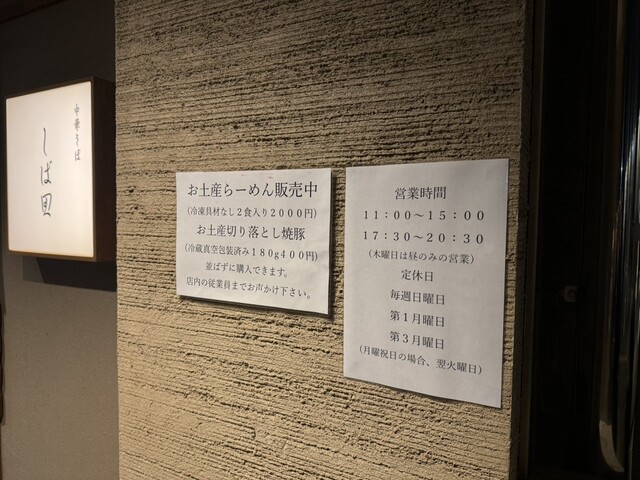 中華そば
しば田
お土産らーめん販売中
（冷凍具材なし２食入り２０００円）
お土産切り落とし焼豚
（冷蔵真空包装済み１８０ｇ４００円）
並ばずに購入できます。
店内の従業員までお声かけ下さい。
営業時間
１１：００～１５：００
１７：３０～２０：３０
（木曜日は昼のみの営業）
定休日
毎週日曜日
第１月曜日
第３月曜日
（月曜祝日の場合、翌火曜日）